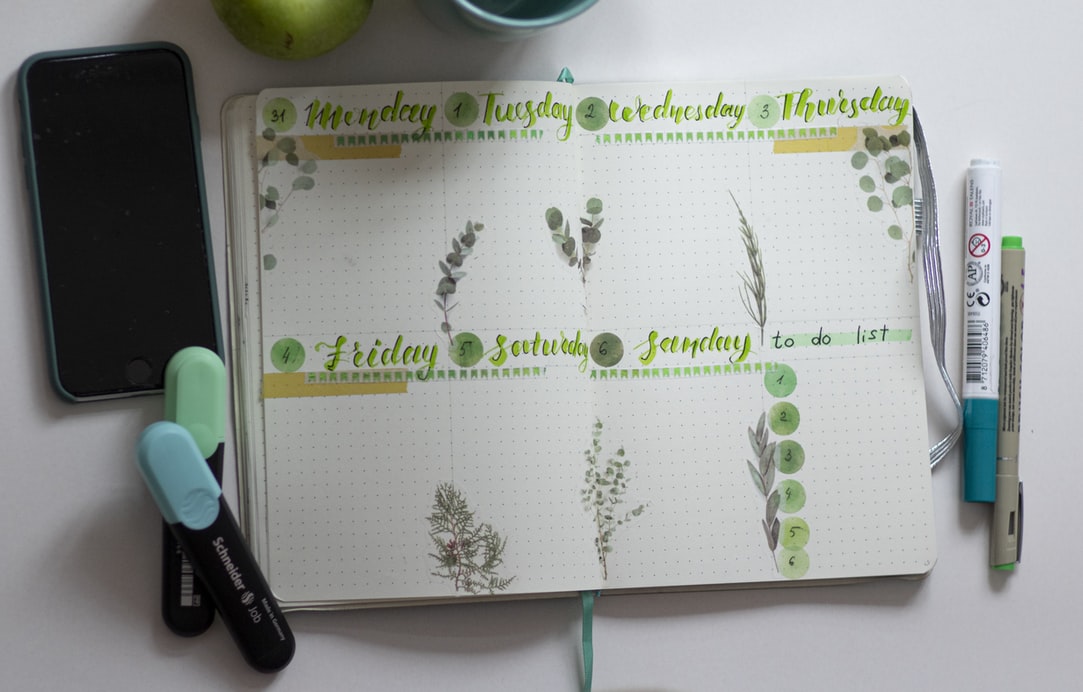 31 Monday 1 Tuesday 2 Wednesday 3 Thursday
4 Friday 5 Saturday 6 Sunday to do list
1
2
3
4
5
6
Schneider Job
Made in Germany
AP
CE
8 712079 406486